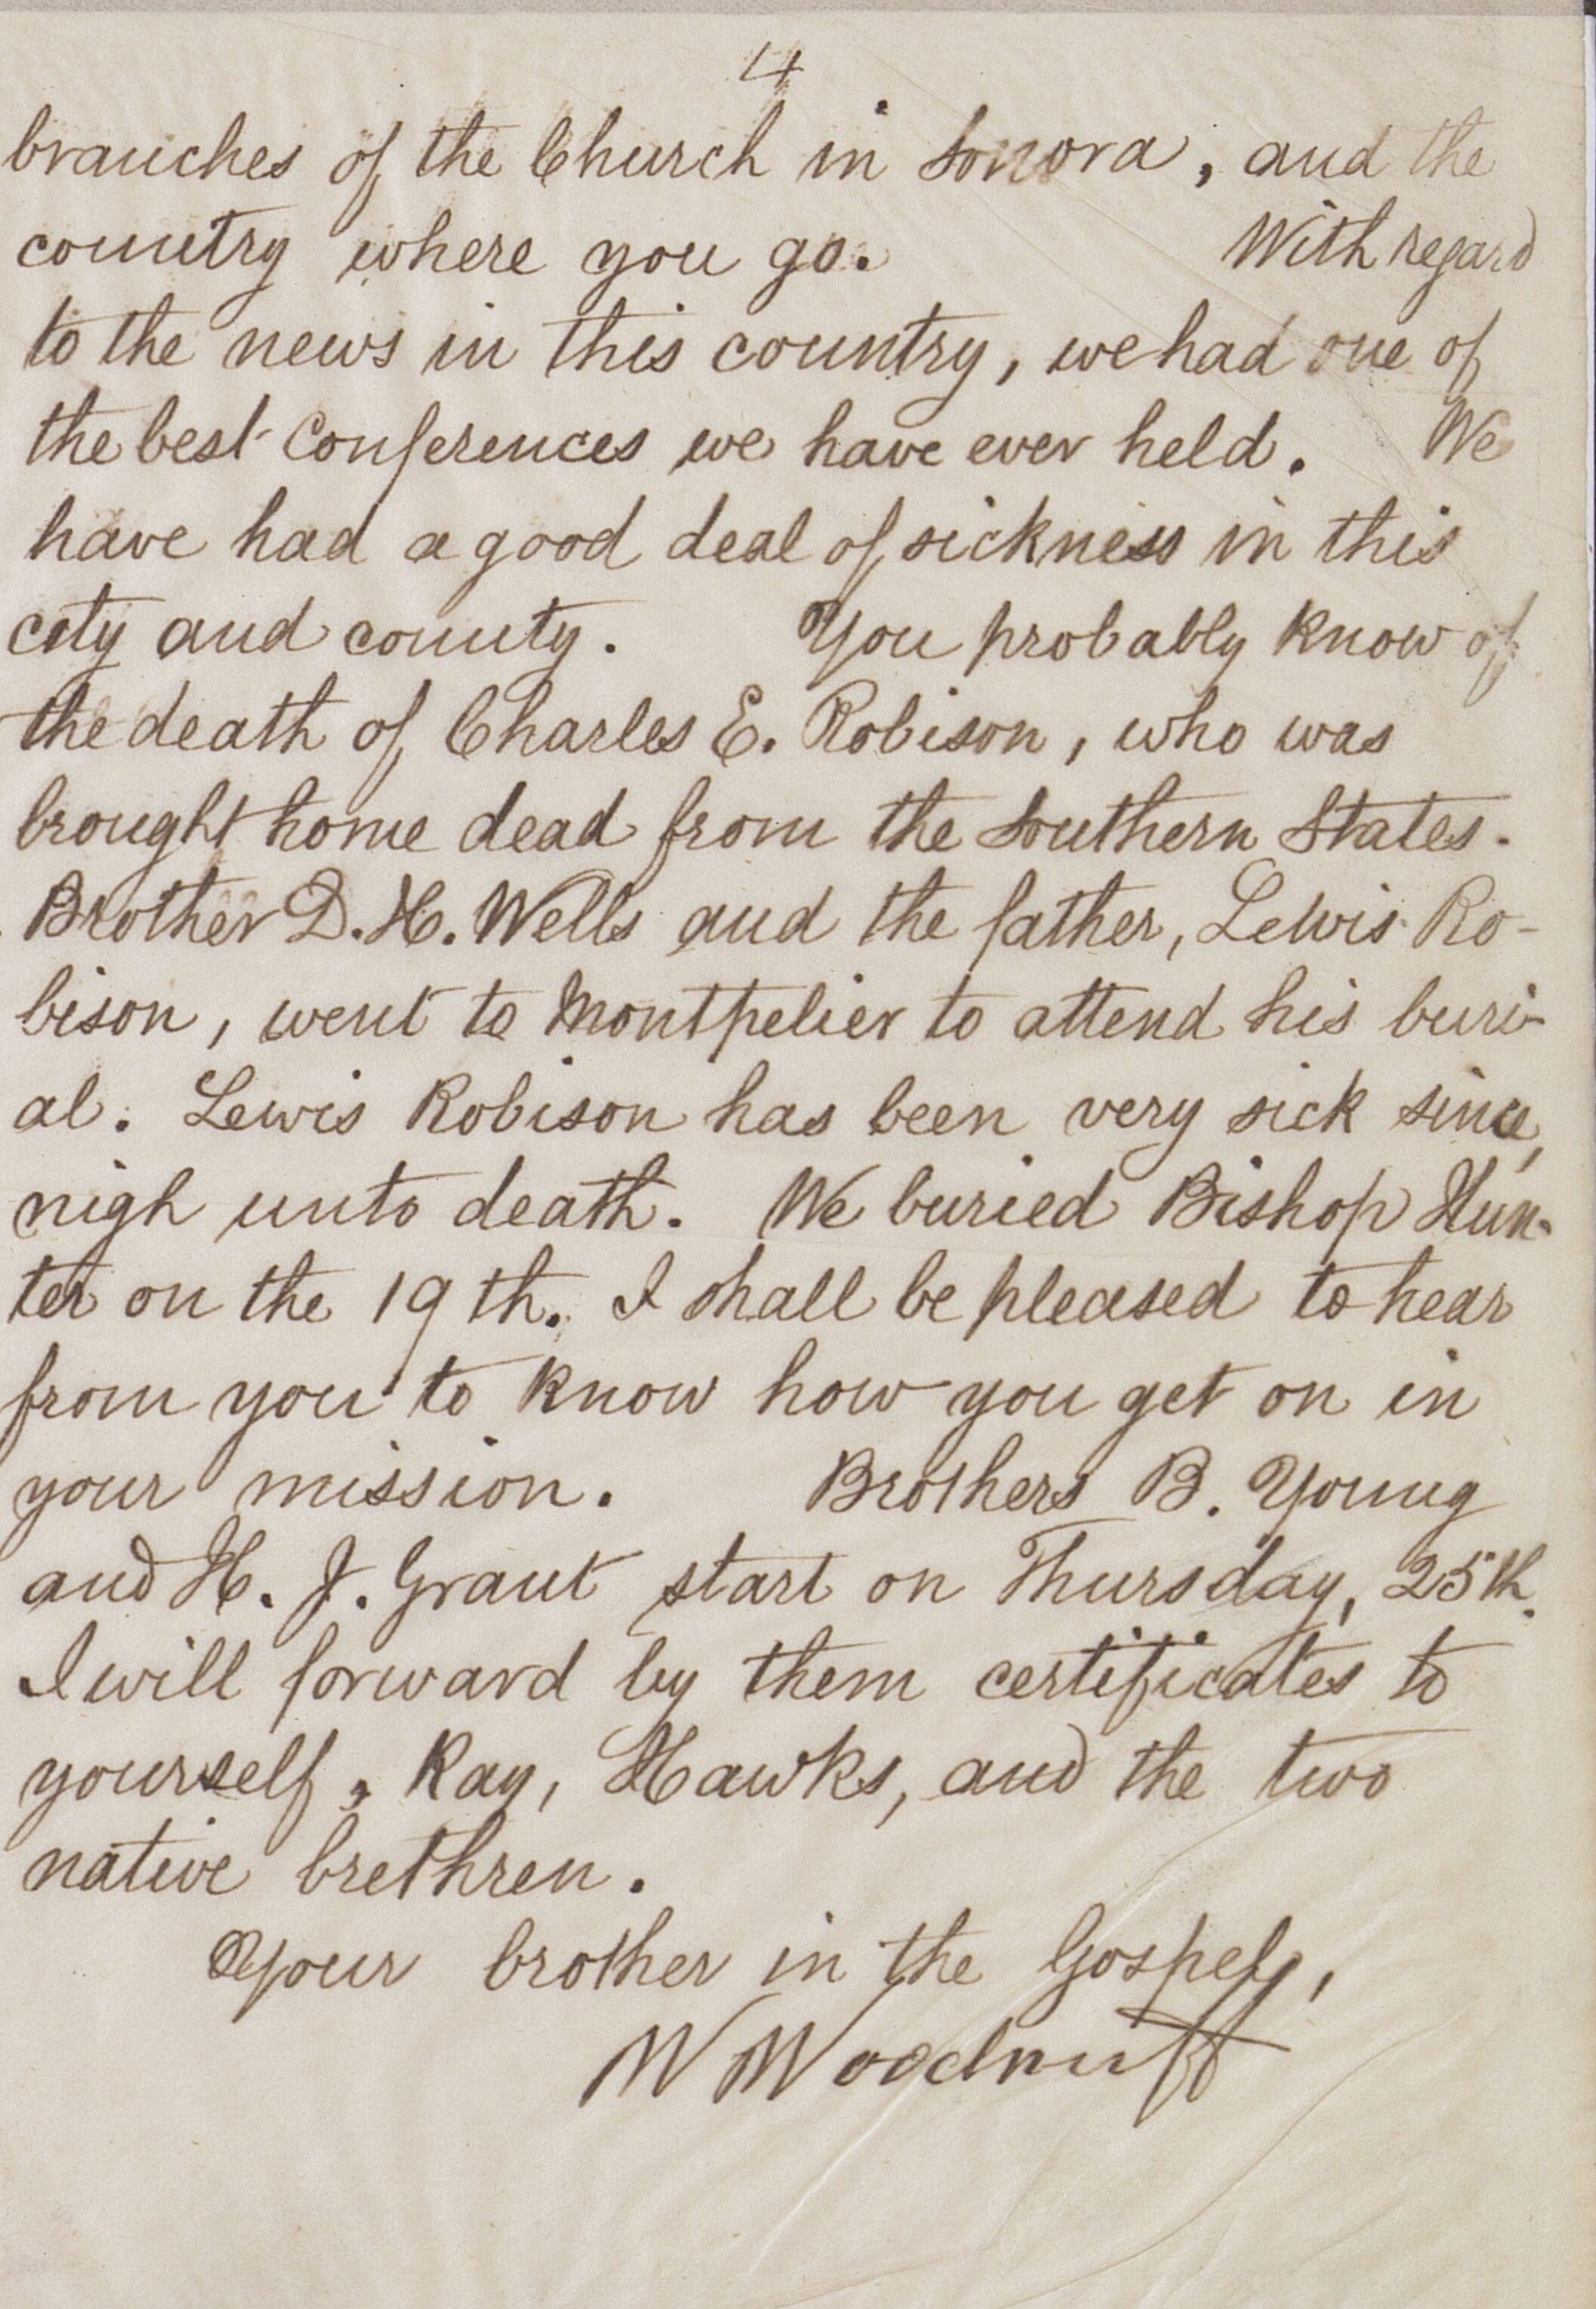 4
branches of the Church in Sonora, and the
country where you go. With regard
to the news in this country, we had one of
the best Conferences we have ever held. We
have had a good deal of sickness in this
city and county. You probably know of
the death of Charles E. Robison, who was
brought home dead from the Southern States.
Brother D. H. Wells and the father, Lewis Ro-
bison, went to Montpelier to attend his buri-
al. Lewis Robison has been very sick since,
nigh unto death. We buried Bishop Hun-
ter on the 19th. I shall be pleased to hear
from you to know how you get on in
your mission. Brothers B. Young
and H. J. Grant start on Thursday, 25th.
I will forward by them certificates to
yourself, Ray, Hawks, and the two
native brethren.
Your brother in the Gospel,
W Woodruff